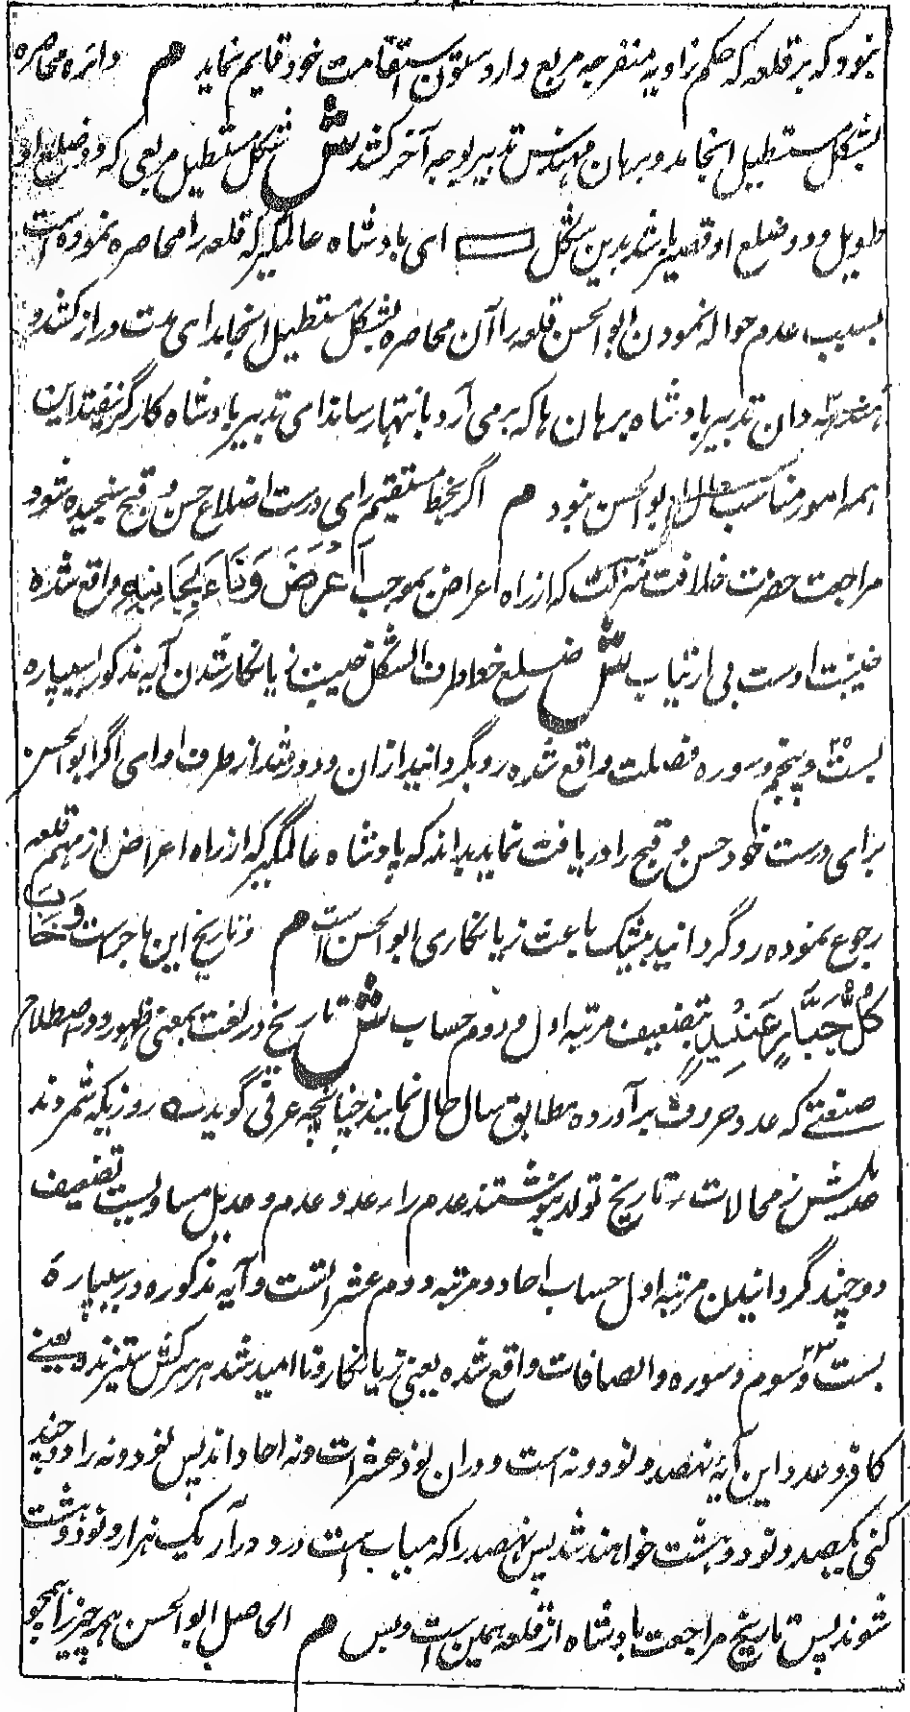 نمود که بر قلعه که حکم زاویه منفرجه مربع دارد ستون استقامت خود قایم نماید م دائره محاصره
بشکل مستطیل انجامد و برهان مهندس تدبیر بوجه آخر کشد ش شکل مستطیل مربعی که دو ضلع او
طویل و دو ضلع او قصیر باشد بدین شکل ای بادشاه عالمگیر که قلعه را محاصره نموده است
بسبب عدم حواله نمودن ابوالحسن قلعه را آن محاصره بشکل مستطیل انجامد ای مدت دراز کشد و
هندسه دان تدبیر بادشاه برهان ها که برمی آرد بانتها رساند ای تدبیر بادشاه کارگر نیفتد این
همه امور مناسب حال ابوالحسن نبود م اگر بخط مستقیم رای درست اضلاع حسن و قبح سنجیده شود
مراجعت حضرت خلافت منزلت که از راه اعراض بموجب اَعْرَضَ وَنَاءَ بِجَانِبِهِ واقع شده
خیبت اوست بی ارتیاب ش ضلع خط اطراف الشکل خیبت زیانکار شدن آیه مذکور سیپاره
بست و پنجم و سوره فصلت واقع شده رو بگردانید ازان و دور شد از طرف او ای اگر ابوالحسن
برای درست خود حسن و قبح را دریافت نماید بداند که پادشاه عالمگیر که از راه اعراض از مهم قلعه
رجوع نموده رو گردانید بیشک باعث زیانکاری ابوالحسن است م و تاریخ این ماجراست وَخَابَ
كُلُّ جَبَّارٍ عَنِيدٍ بتضعیف مرتبه اول و دوم حساب ش تاریخ در لغت بمعنی ظهور و در اصطلاح
صنعتی که عدد حروف برآورده مطابق سال حال نمایند چنانچه عرفی گوید روزیکه شمردند
عدیلش ز محالات تاریخ تولد بنوشتند عدم را عدد عدم و عدیل مساویست تضعیف
دو چند گردانیدن مرتبه اول حساب احاد و مرتبه دوم عشرات است و آیه مذکوره در سیپاره
بست و سوم و سوره والصافات واقع شده یعنی زیانکار و ناامید شد هر سرکش ستیزنده یعنی
کافر و عدد این آیه نهصد و نود و نه است و دران نود عشرات و نه احاد اند پس نود و نه را دو چند
کنی یکصد و نود و هشت خواهند شد پس نهصد را که میاب است درو درآر یک هزار و نود و هشت
شوند پس تاریخ مراجعت بادشاه از قلعه همین است و بس م الحاصل ابوالحسن هر چیز را همچو